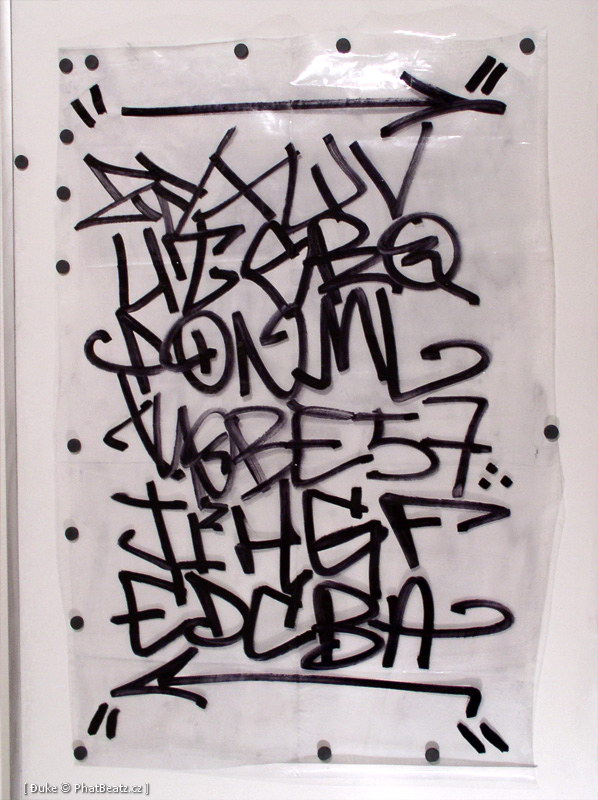 ZYXWV
UTSRQ
PONML
57
JIHGF
EDCBA
[ Đuke © PhatBeatz.cz ]